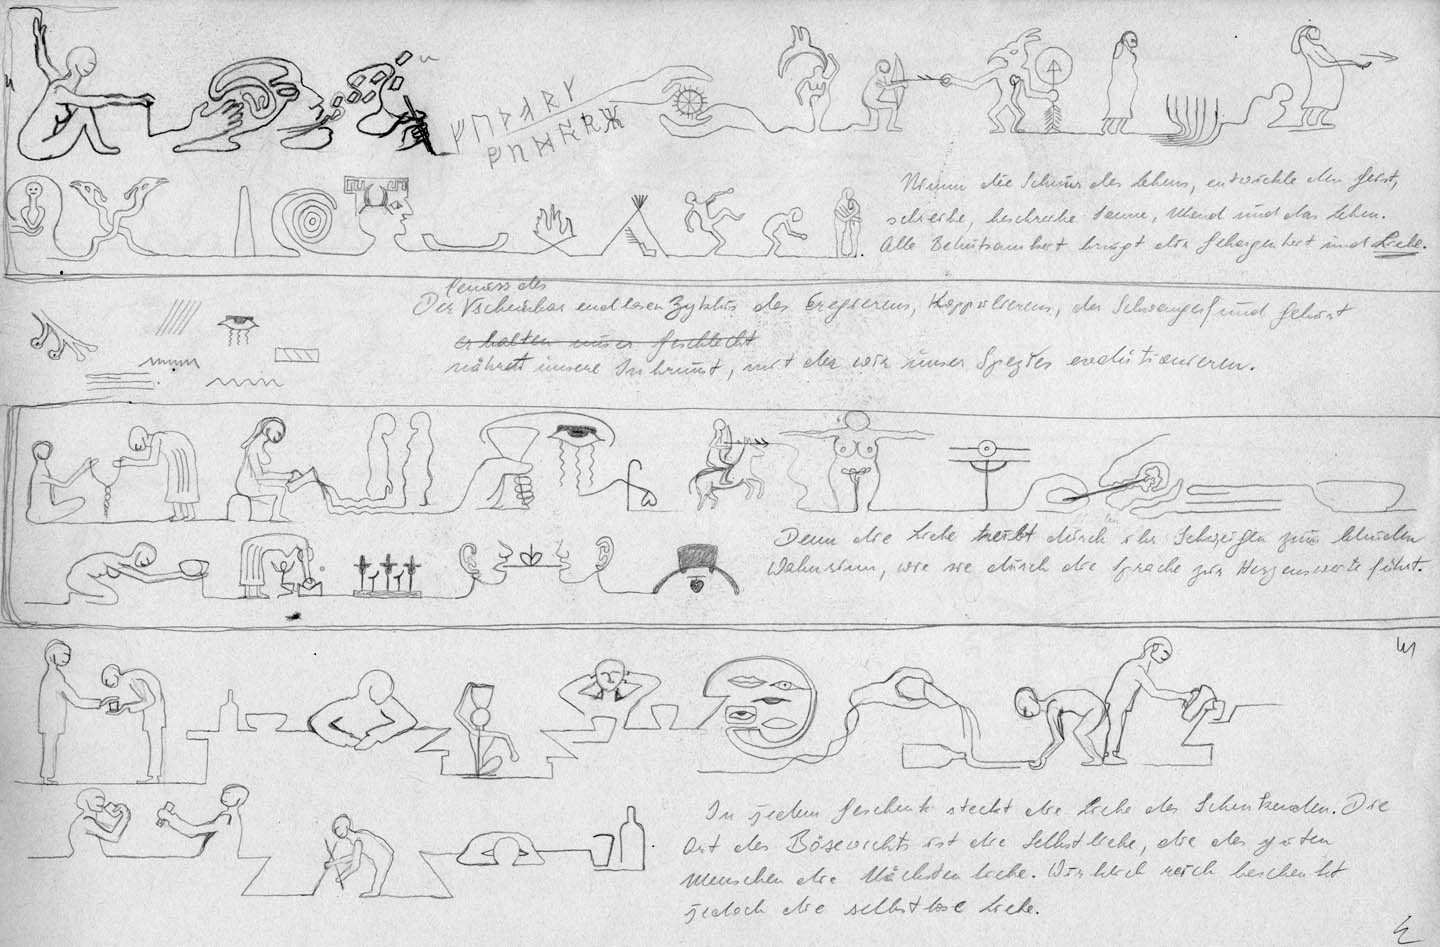 Nimm die Schnur des Lebens, entwickle den Geist,
schreibe, beschreibe Sonne, Mond und das Leben.
Alle Behutsamkeit bringt dir Geborgenheit und Liebe.
Genuss des
Der scheinbar endlosen Zyklus des Eregierens, Koppulierens, der Schwangerf und Geburt
erhalten unser Geschlecht
nährt unsere Inbrunst, mit der wir unser Spezies evolutionieren.
Denn die Liebe treibt durch ihr Schweigen zum blinden
Wahnsinn, wie sie durch die Sprache zur Herzenswerte führt.
In jedem Geschenk steckt die Liebe des Schenkenden. Die
Art des Bösewichts ist die Selbstliebe, die des guten
Menschen die Nächstenliebe. Wirklich reich beschenkt
jedoch die selbstlose Liebe.